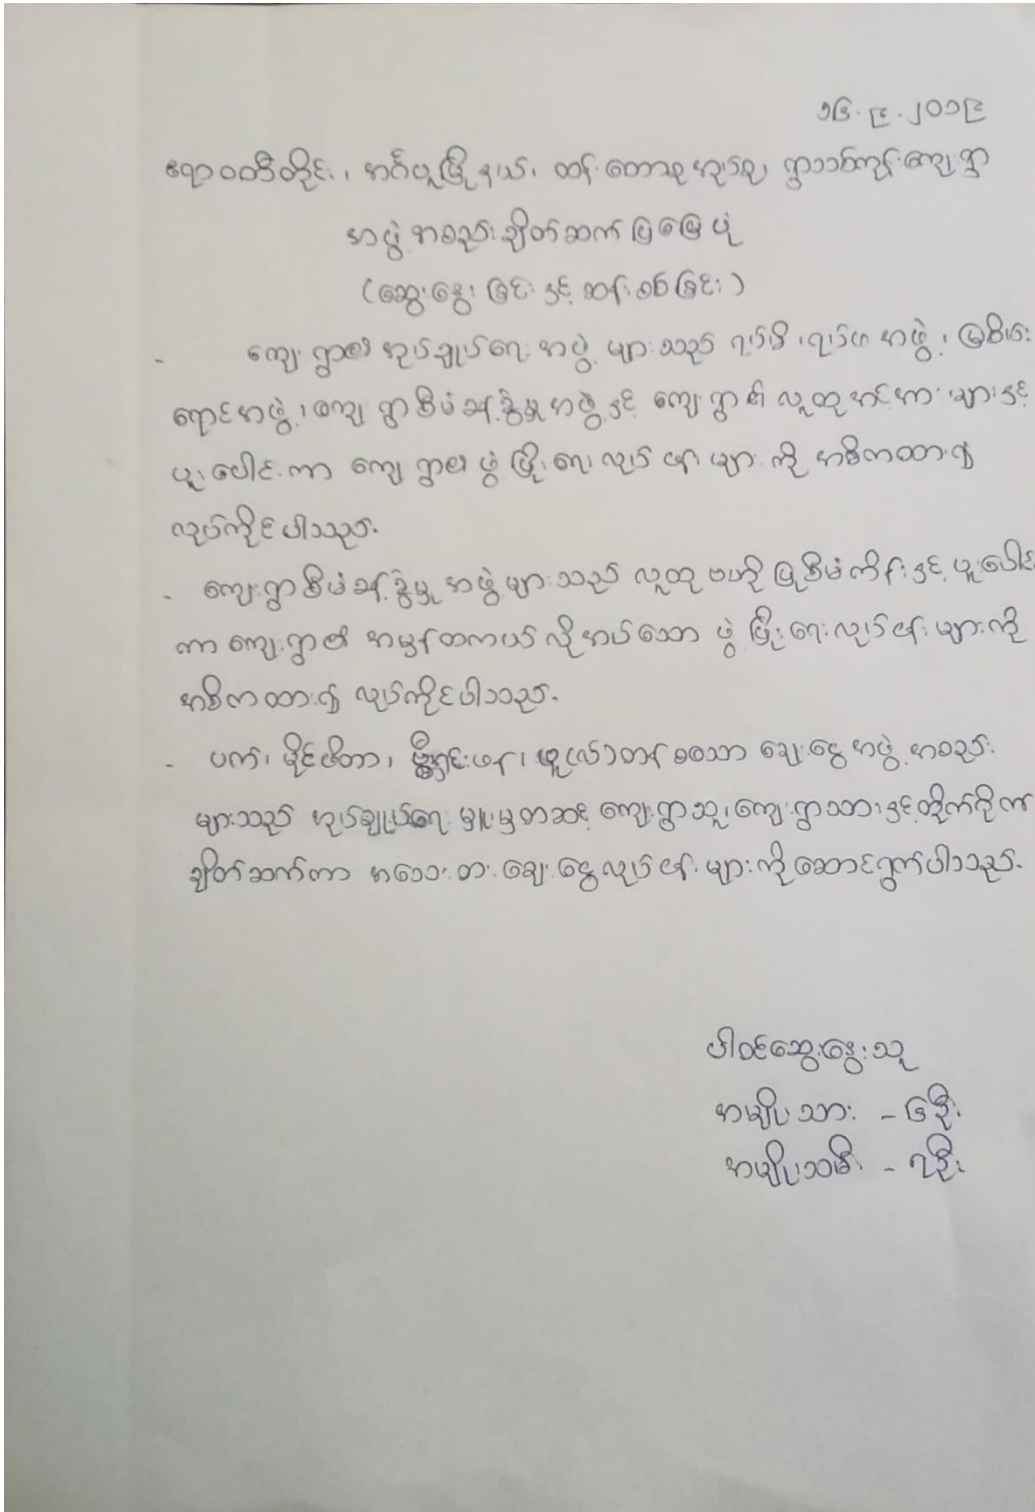 ၁၆.၉.၂၀၁၉
ဧရာဝတီတိုင်း၊ အင်္ဂပူမြို့နယ်၊ ထန်းတောစုအုပ်စု၊ ရွာသစ်ကုန်းကျေးရွာ
အဖွဲ့အစည်းချိတ်ဆက်ပြမြေပုံ
(ဆွေးနွေးခြင်းနှင့်ဆန်းစစ်ခြင်း)
- ကျေးရွာ၏ အုပ်ချုပ်ရေးအဖွဲ့များသည် ရပ်မိ၊ရပ်ဖအဖွဲ့၊ မြစိမ်း
ရောင်အဖွဲ့၊ ကျေးရွာစီမံခန့်ခွဲမှုအဖွဲ့နှင့် ကျေးရွာ၏ လူထုအင်အားများနှင့်
ပူးပေါင်းကာ ကျေးရွာ၏ ဖွံ့ဖြိုးရေးလုပ်ငန်းများကို အဓိကထား၍
လုပ်ကိုင်ပါသည်။
- ကျေးရွာစီမံခန့်ခွဲမှုအဖွဲ့များသည် လူထုဗဟိုပြုစီမံကိန်းနှင့် ပူးပေါင်း
ကာ ကျေးရွာ၏ အမှန်တကယ်လိုအပ်သော ဖွံ့ဖြိုးရေးလုပ်ငန်းများကို
အဓိကထား၍ လုပ်ကိုင်ပါသည်။
- ပက်၊ မိုင်ခိတာ၊ မှူးလ်ာတန် စသော ချေးငွေအဖွဲ့အစည်း
များသည် အုပ်ချုပ်ရေးမှူးမှတဆင့် ကျေးရွာသူ၊ကျေးရွာသားနှင့်တိုက်ရိုက်
ချိတ်ဆက်ကာ အသေးစားချေးငွေလုပ်ငန်းများကိုဆောင်ရွက်ပါသည်။
ပါဝင်ဆွေးနွေးသူ
အမျိုးသား - ၆ဦး
အမျိုးသမီး - ၇ဦး